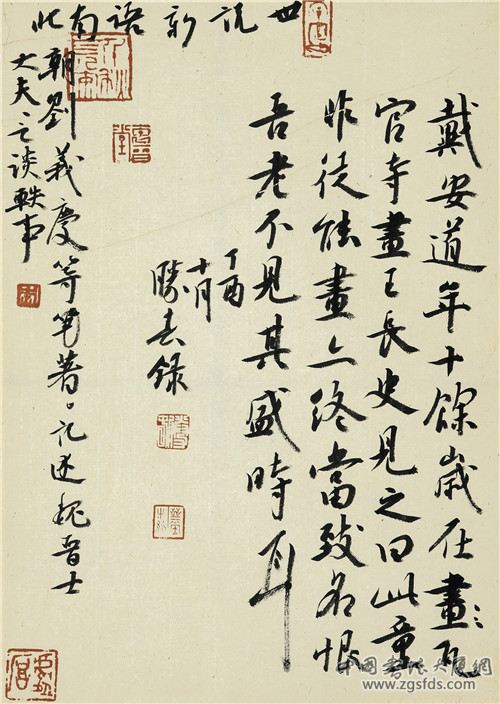 戴安道年十餘歲在畫瓦
官寺畫王長史見之曰此童
非徒能畫亦終當致名恨
吾老不見其盛時耳
丁酉
十月
勝 錄
世說新語南北
朝劉義慶等 著。記述魏晋士
大夫之談軼事
中国书法大厦网
www.zgsfds.com